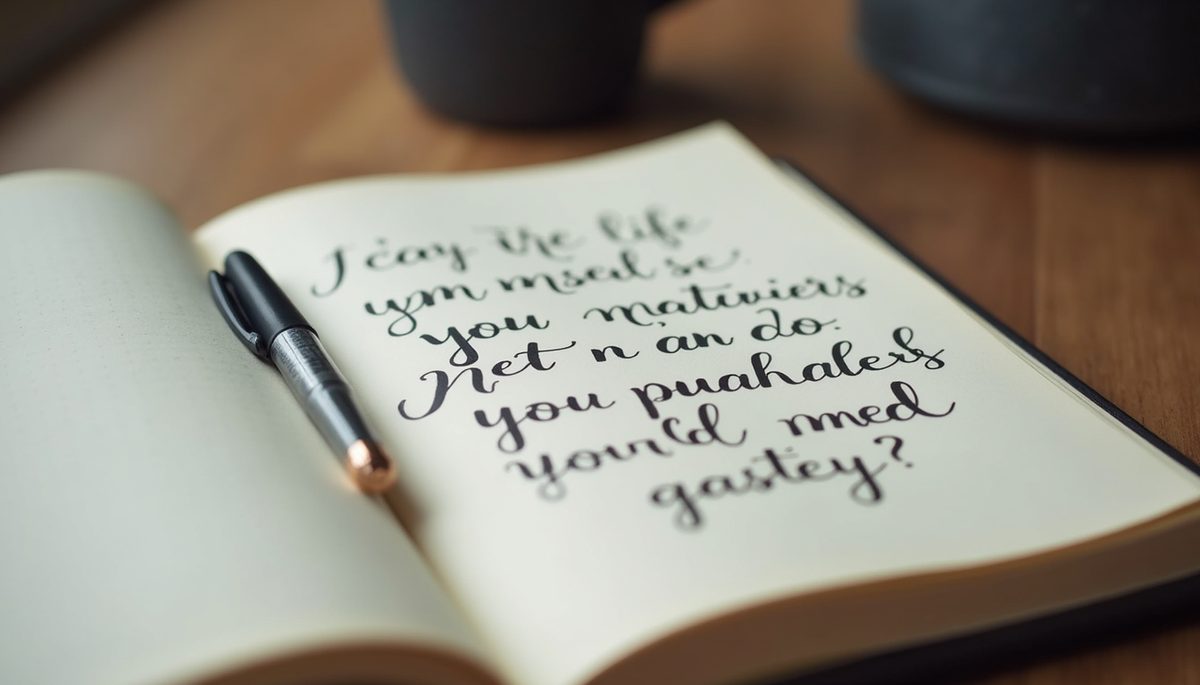 I čay the life
yym mseal se.
you matuviers
Net n 'an do.
you puahalers
your'd nmed
gastey?